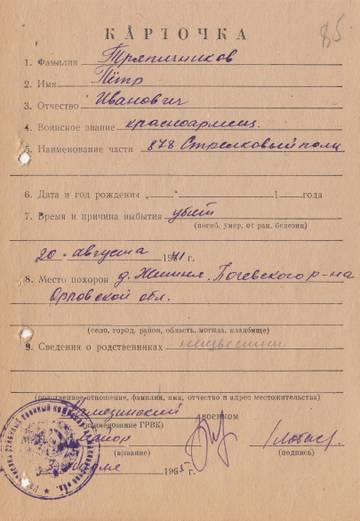 85
КАРТОЧКА
1. Фамилия Тряпичников
2. Имя Пётр
3. Отчество Иванович
4. Воинское звание красноармеец.
5. Наименование части 878 Стрелковый полк
6. Дата и год рождения „ “ 1 года
7. Время и причина выбытия убит
(погиб, умер, от ран, болезни)
20 августа 1941 г.
8. Место похорон д.
Орловской обл.
(село, город, район, область, могила, кладбище)
9. Сведения о родственниках неизвестны
(родственное отношение, фамилия, имя, отчество и адрес местожительства)
военком
(наименование ГРВК)
Майор
(звание) (подпись)
1965 г.